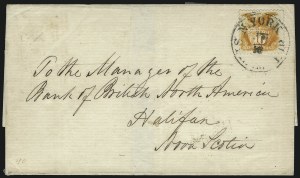 N. YORK
To the Manager of the
Bank of British North America
Halifax
Nova Scotia